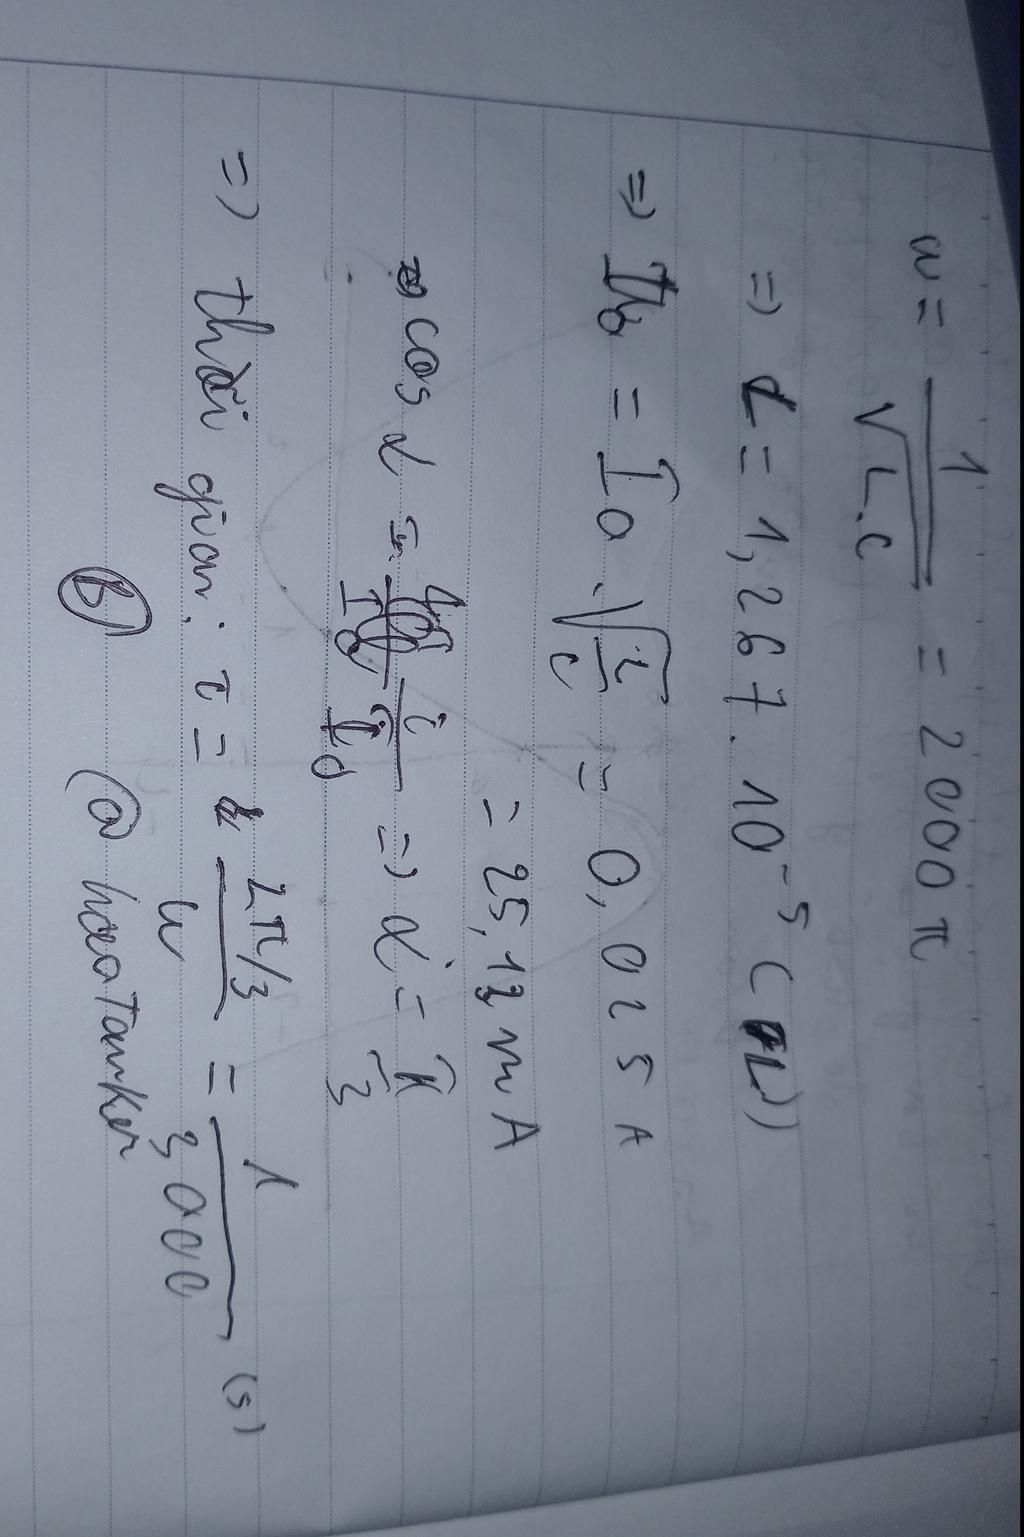 ω = 1/√L.C = 2000π
=> L = 1,267.10⁻⁵ (H)
=> I₀ . √L/C = 0,025 A
= 25,13 mA
=> cos α = i/I₀ => α = π/3
=> thời gian: τ = 2π/3/ω = 1/3000 (s)
Ⓑ @hoatanker